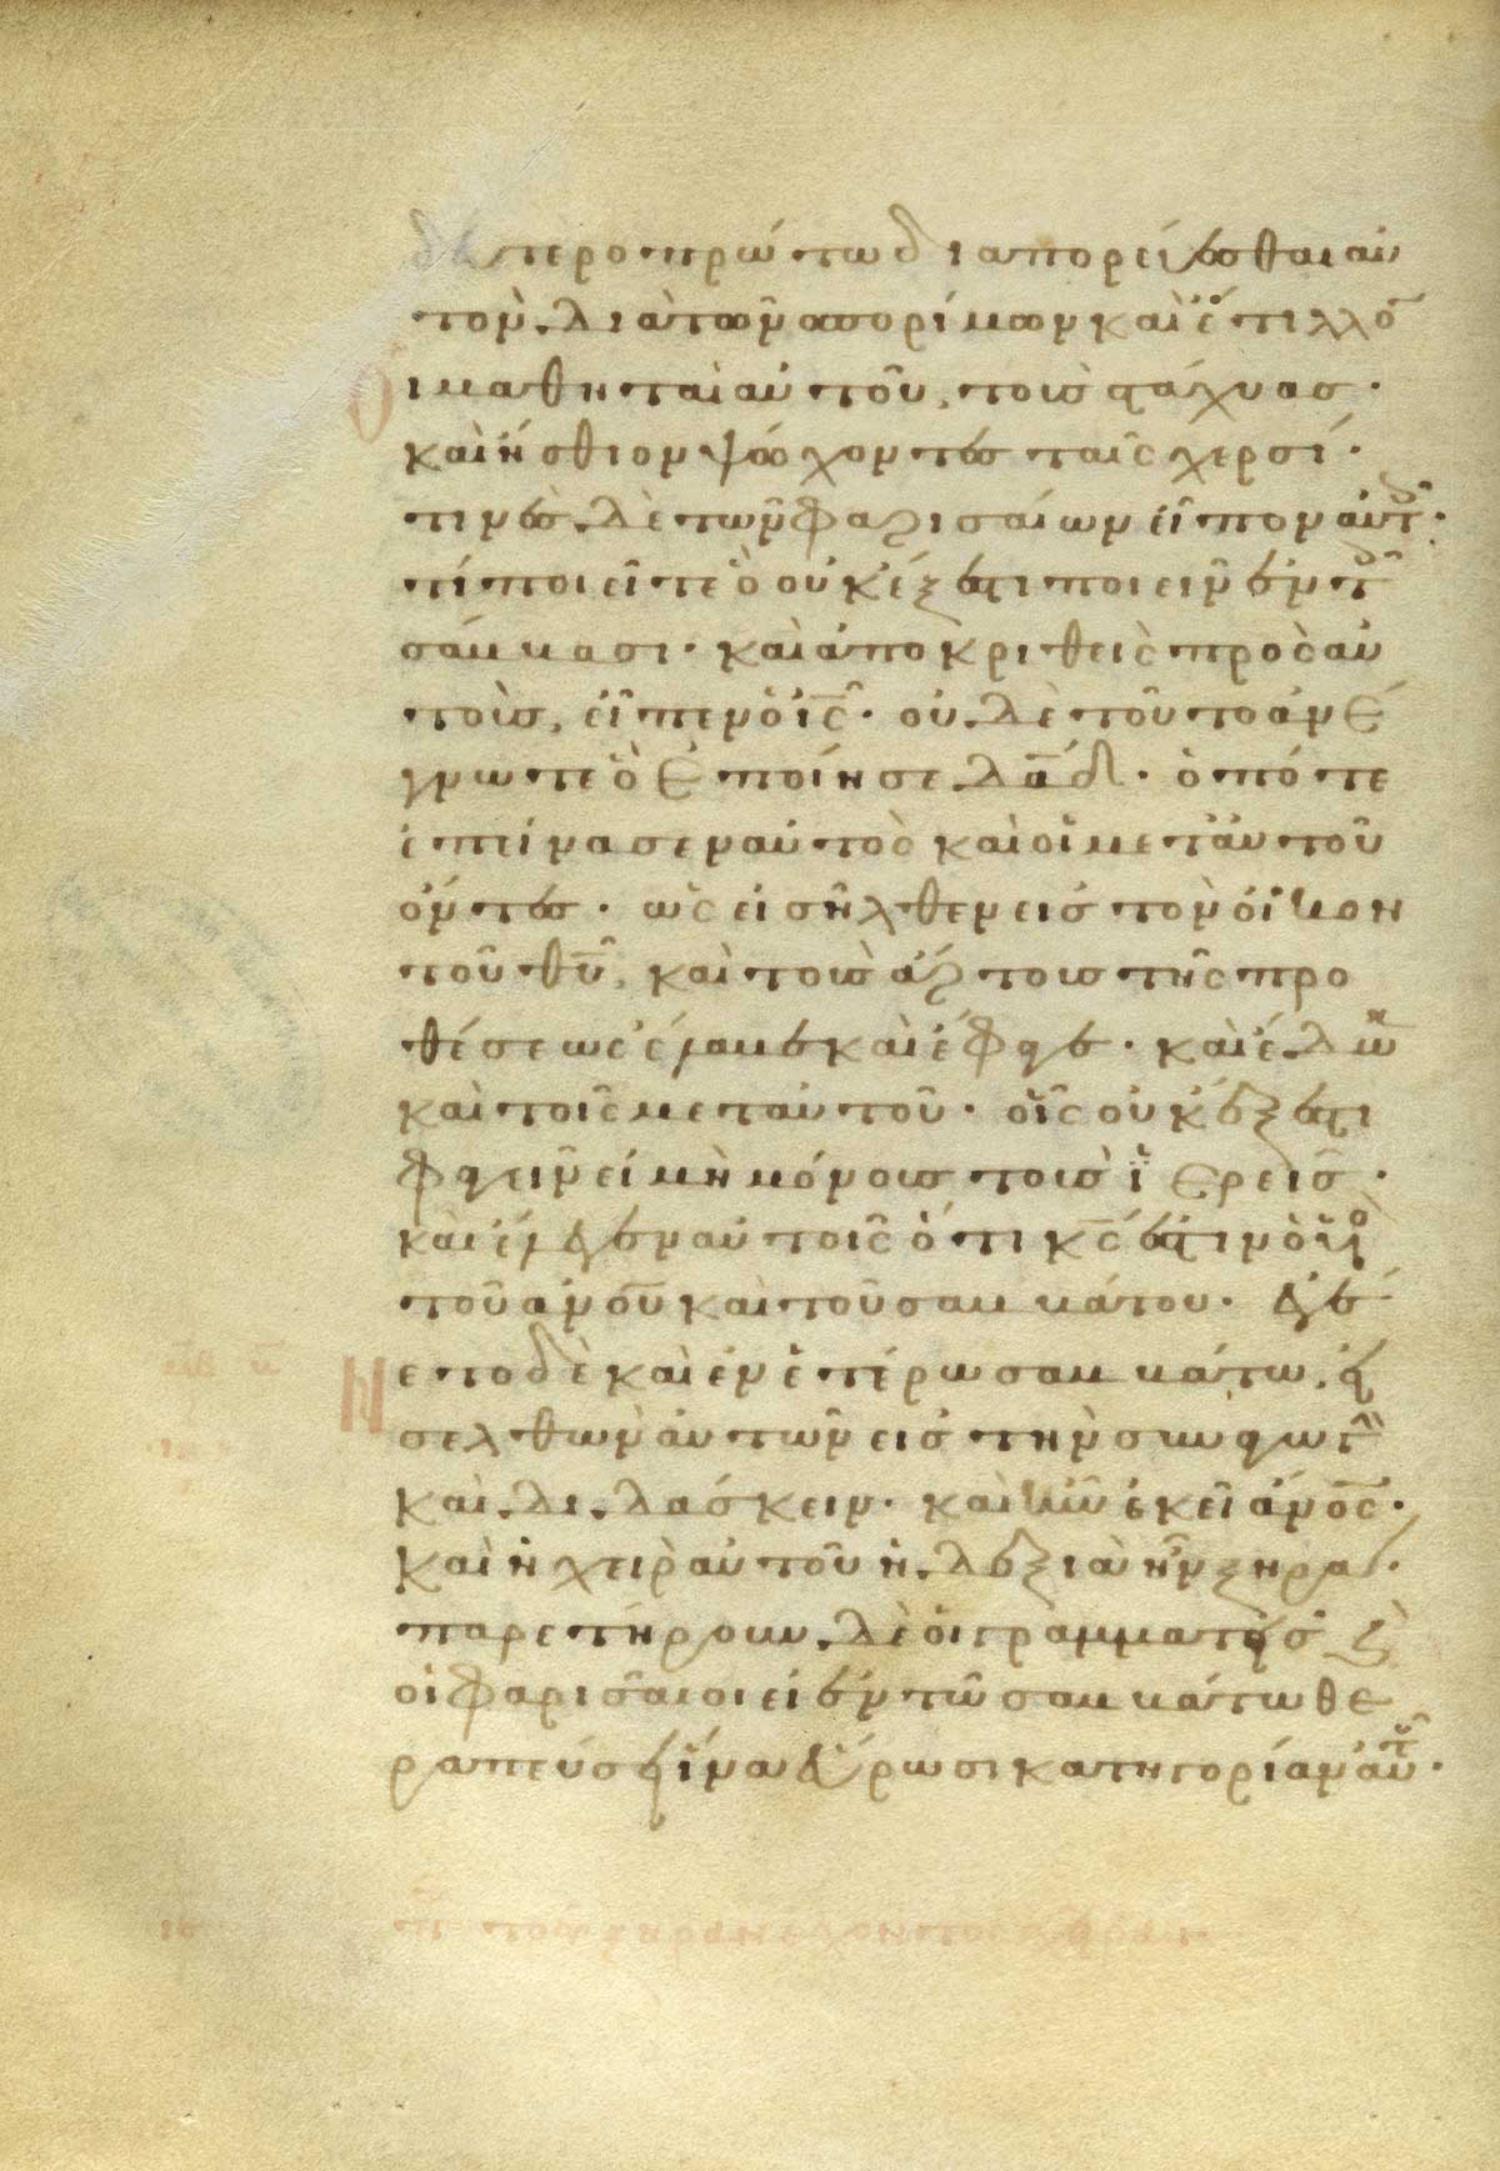 δευτεροπρώτω διαπορεύεσθαι αὐ
τὸν διὰ τῶν σπορίμων καὶ ἔτιλλο̄
Οἱ μαθηταὶ αὐτοῦ, τοὺς στάχυας·
καὶ ἤσθιον ψώχοντες ταῖς χερσί·
τινὲς δὲ τῶν φαρισαίων εἶπον αὐτ·
τί ποιεῖτε ὃ οὐκ ἔξεστι ποιεῖν ἐν τ
σάββασι· καὶ ἀποκριθεὶς πρὸς αὐ
τοὺς, εἶπεν ὁ ις̄· οὐδὲ τοῦτο ἀνέ
γνωτε ὃ ἐποίησε δᾱδ· ὁπότε
ἐπείνασεν αὐτὸς καὶ οἱ μετ' αὐτοῦ
ὄντες· ὡς εἰσῆλθεν εἰς τὸν οἶκον
τοῦ θῡ, καὶ τοὺς ἄρτους τῆς προ
θέσεως ἔλαβε καὶ ἔφαγε· καὶ ἔδω
καὶ τοῖς μετ αὐτοῦ· οἷς οὐκ ἔξεστι
φαγεῖν εἰ μὴ μόνους τοὺς ἱερεῖς·
καὶ ἔλεγεν αὐτοῖς ὅτι κς̄ ἐστιν ὁ υἱο
τοῦ ἀνο̄υ καὶ τοῦ σαββάτου· ἐγέ
Νετο δὲ καὶ ἐν ἑτέρω σαββάτω, εἰ
σελθεῖν αὐτὸν εἰς τὴν συναγωγ
καὶ διδάσκειν· καὶ ἦν ἐκεῖ ἄνο̄ς·
καὶ ἡ χεὶρ αὐτοῦ ἡ δεξιὰ ἦν ξηρά·
παρετήρουν δὲ οἱ γραμματεῖς ϗ
οἱ φαρισαῖοι εἰ ἐν τῶ σαββάτω θε
ραπεύσει ἵνα εὕρωσι κατηγορίαν αὐτ·